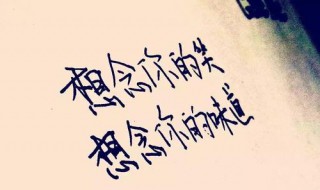 想念你的笑
想念你的味道